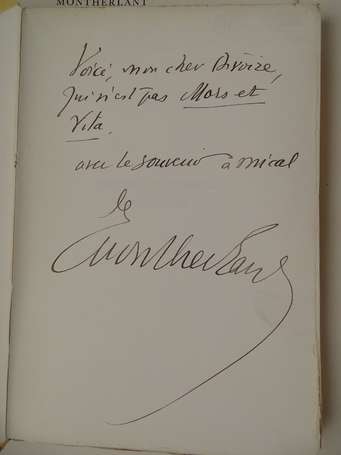 MONTHERLANT
Voici, mon cher Divoire,
qui n'est pas Mors et
Vita.
avec le souvenir amical
de
Montherlant